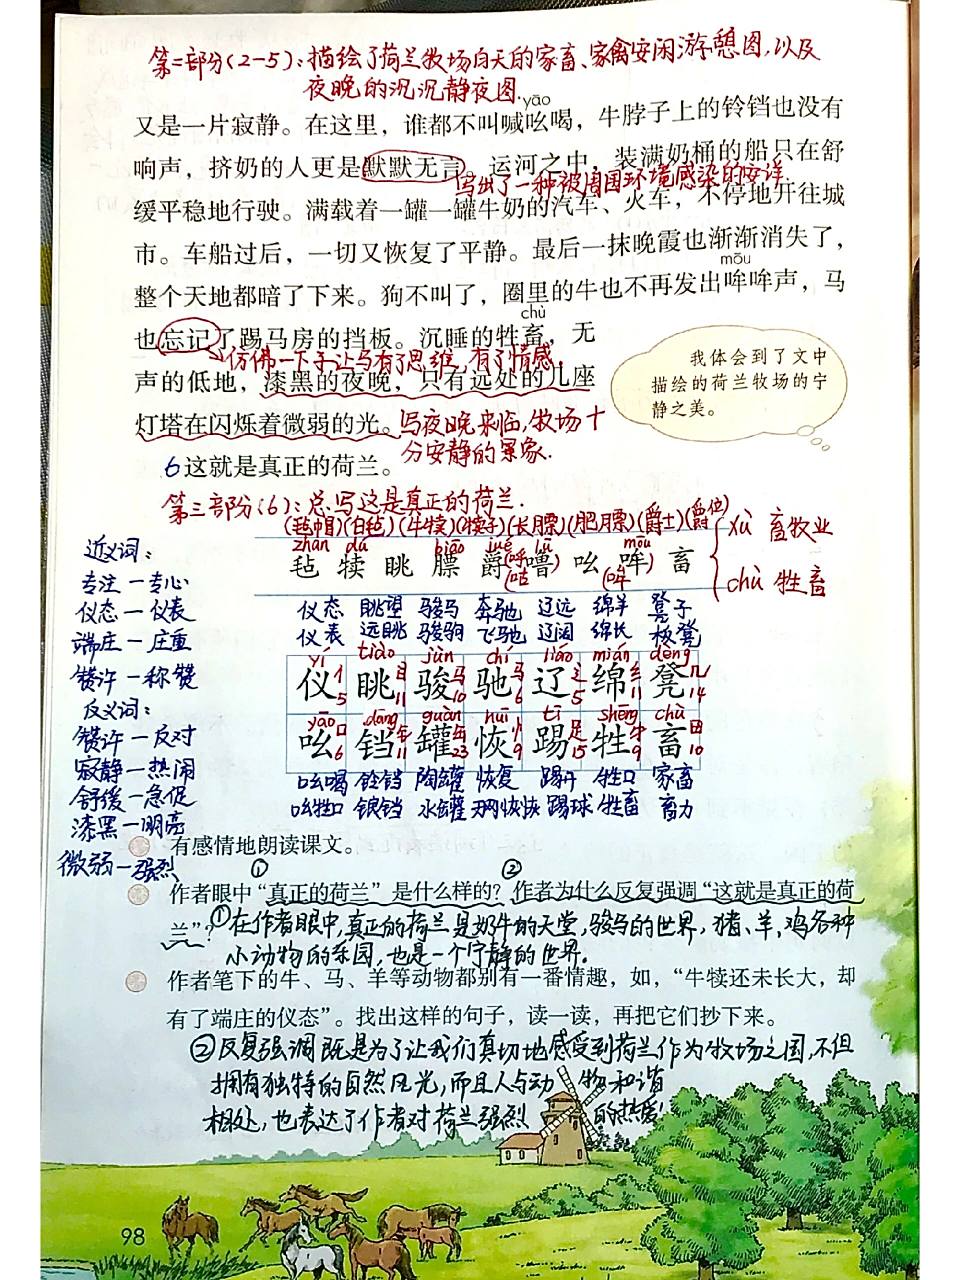 第二部分(2-5):描绘了荷兰牧场白天的家畜、家禽安闲游憩图,以及
夜晚的沉沉静夜图.
yāo
又是一片寂静。在这里，谁都不叫喊吆喝，牛脖子上的铃铛也没有
响声，挤奶的人更是默默无言。运河之中，装满奶桶的船只在舒
写出了一种被周围环境感染的安详.
缓平稳地行驶。满载着一罐一罐牛奶的汽车、火车，不停地开往城
市。车船过后，一切又恢复了平静。最后一抹晚霞也渐渐消失了，
mōu
整个天地都暗了下来。狗不叫了，圈里的牛也不再发出哞哞声，马
chù
也忘记了踢马房的挡板。沉睡的牲畜，无
仿佛一下子让马有了思维,有了情感。
声的低地，漆黑的夜晚，只有远处的几座
灯塔在闪烁着微弱的光。写夜晚来临,牧场十
分安静的景象.
我体会到了文中
描绘的荷兰牧场的宁
静之美。
6这就是真正的荷兰。
第三部分(6):总写这是真正的荷兰.
(毡帽)(白毡)(牛犊)(犊子)(长膘)(肥膘)(爵士)(爵位)
zhān dú biāo jué lū mōu
毡 犊 眺 膘 爵 噜 吆 哞 畜
(呼)
(咕 (哞
xù 畜牧业
chù 牲畜
近义词:
专注—专心
仪态—仪表
端庄—庄重
赞许—称赞
反义词:
赞许—反对
寂静—热闹
舒缓—急促
漆黑—明亮
微弱—强烈
仪态 眺望 骏马 奔驰 辽远 绵羊 凳子
仪表 远眺 骏驹 飞驰 辽阔 绵长 板凳
yí tiào jùn chí liáo mián dèng
仪 眺 骏 驰 辽 绵 凳
亻5 目11 马10 马6 辶5 纟11 几14
yāo dāng guàn huī tī shēng chù
吆 铛 罐 恢 踢 牲 畜
口6 钅11 缶23 忄9 足15 牛9 田10
吆喝 铃铛 陶罐 恢复 踢开 牲口 家畜
吆牲口 锒铛 水罐 天网恢恢 踢球 牲畜 畜力
有感情地朗读课文。
① ②
作者眼中“真正的荷兰”是什么样的？作者为什么反复强调“这就是真正的荷
兰”？
①在作者眼中,真正的荷兰是奶牛的天堂,骏马的世界,猪、羊、鸡各种
小动物的乐园,也是一个宁静的世界.
作者笔下的牛、马、羊等动物都别有一番情趣，如，“牛犊还未长大，却
有了端庄的仪态”。找出这样的句子，读一读，再把它们抄下来。
②反复强调既是为了让我们真切地感受到荷兰作为牧场之国,不但
拥有独特的自然风光,而且人与动物和谐
相处,也表达了作者对荷兰强烈的热爱!
98